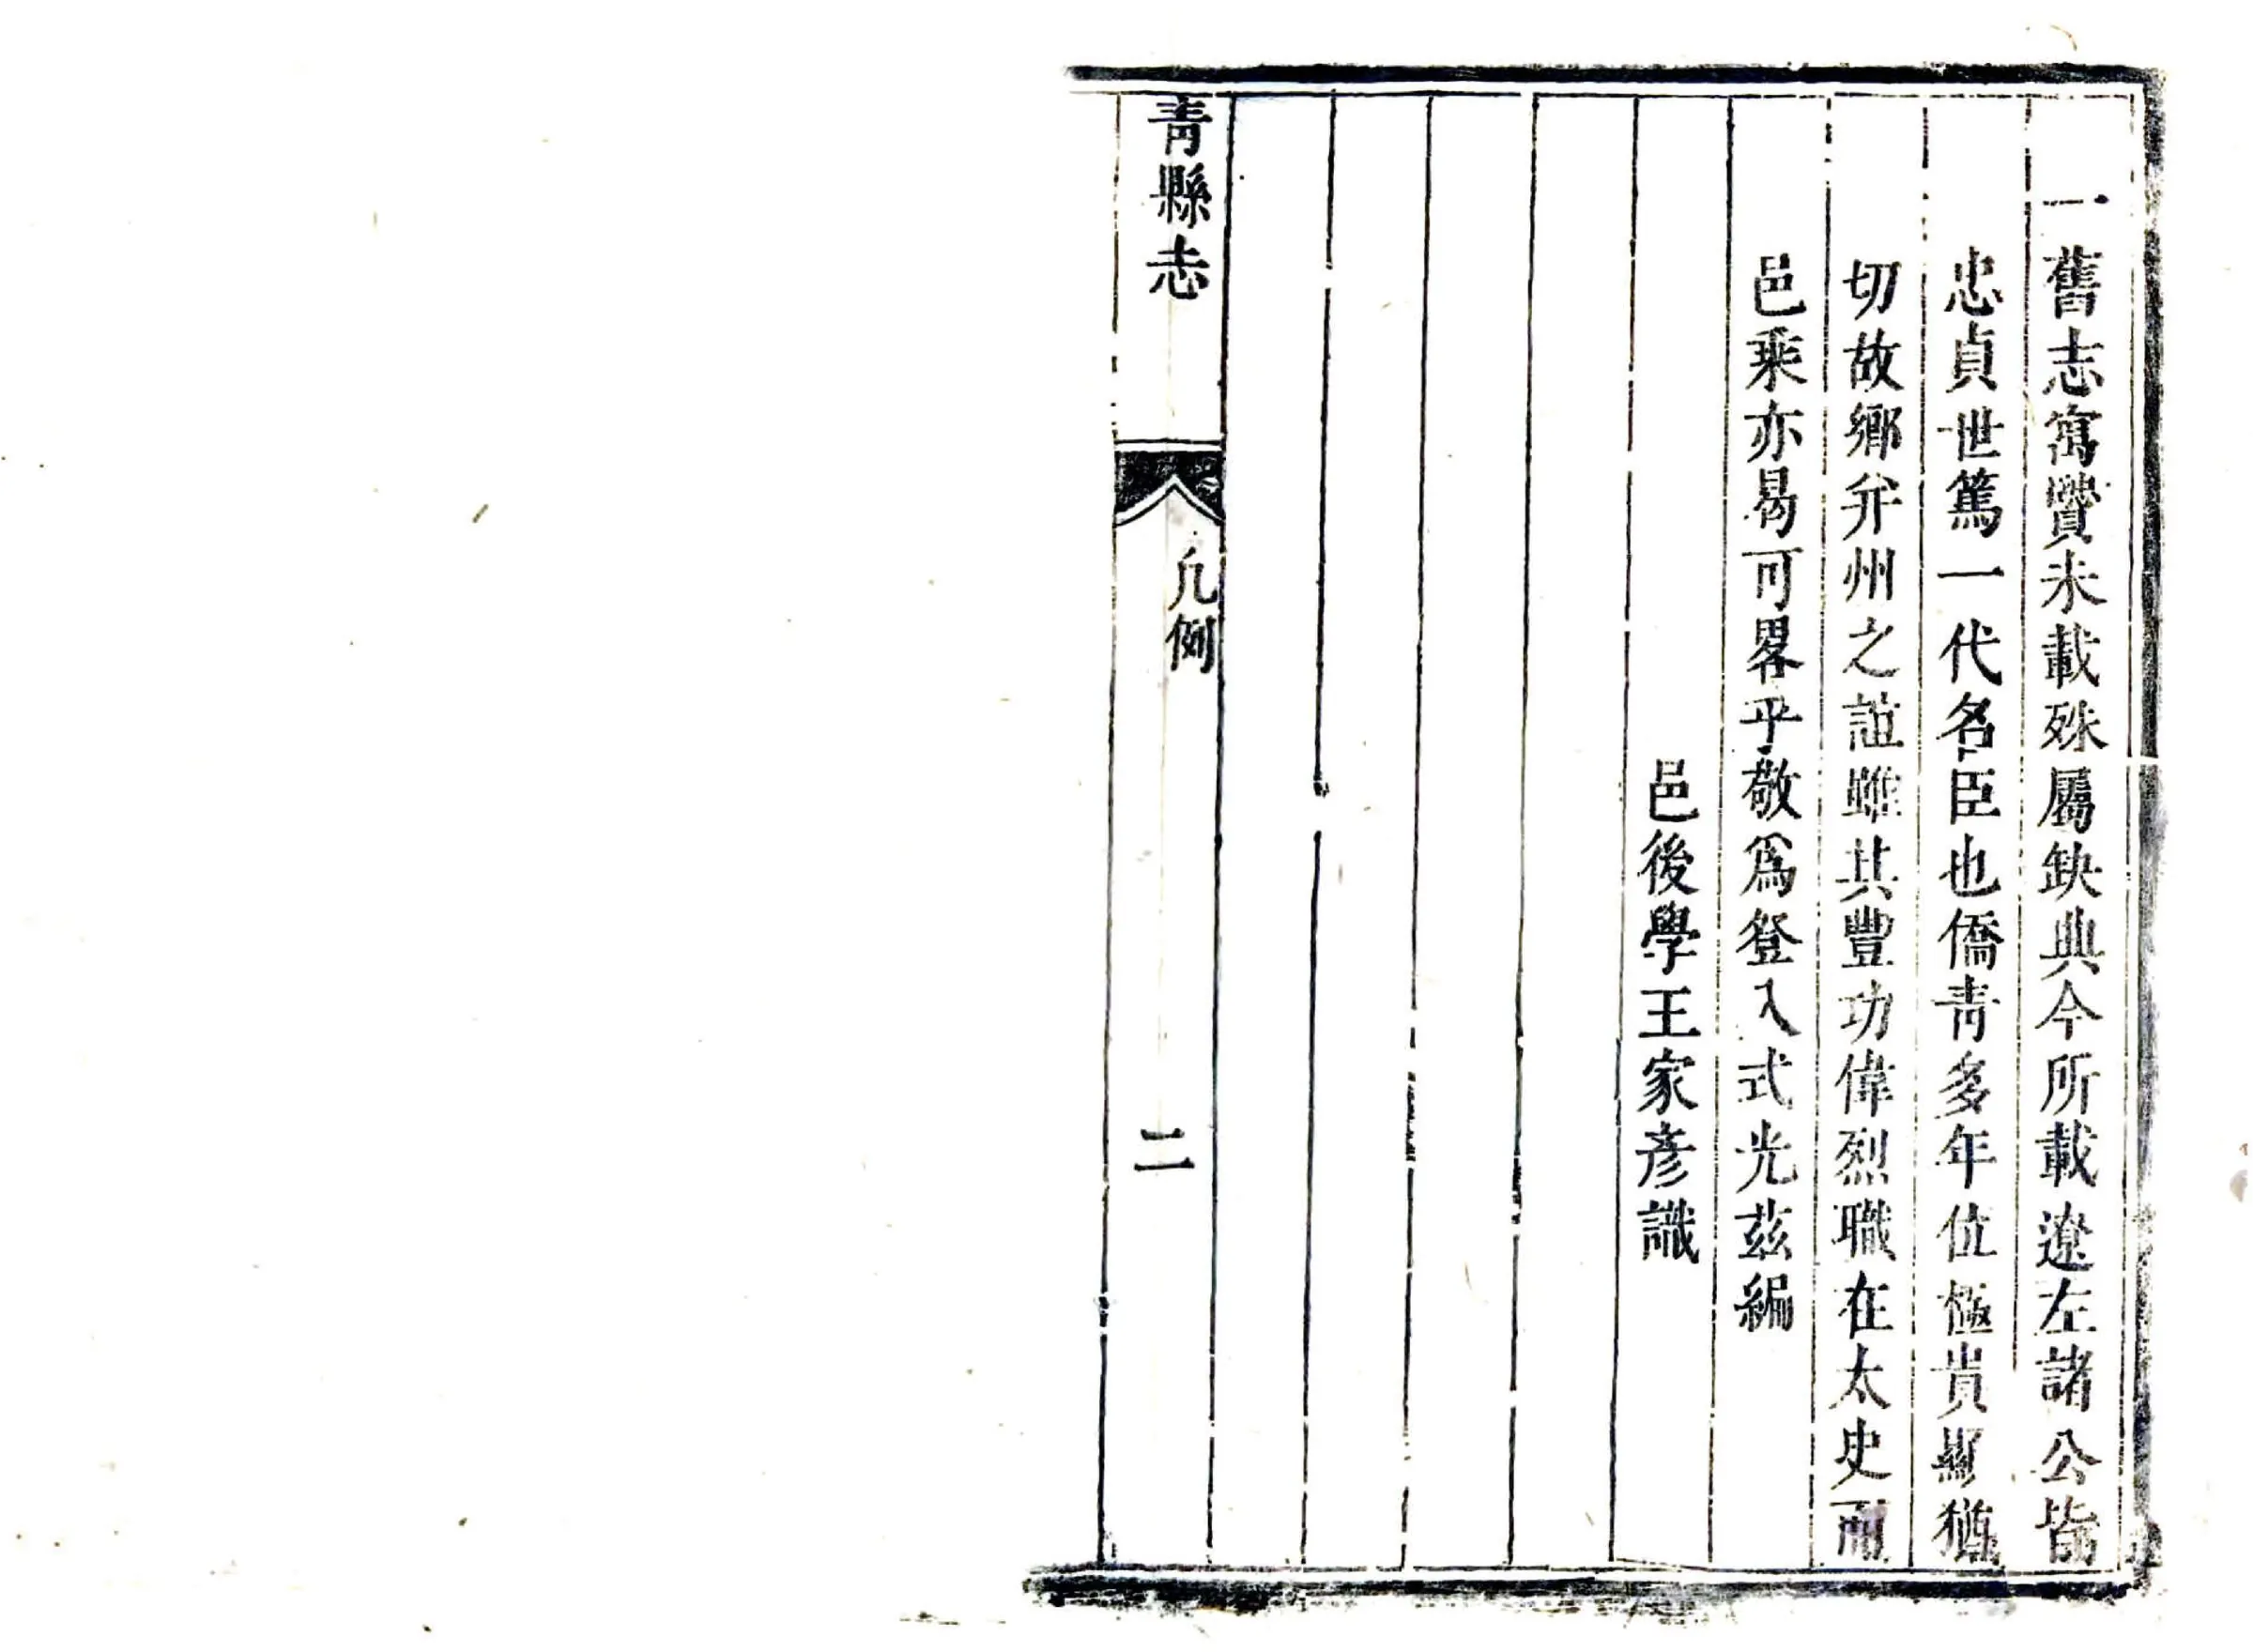 一舊志寓賢未載殊屬缺典今所載遼左諸公皆
忠貞世篤一代名臣也僑青多年位極貴顯猶
切故鄉弁州之誼雖其豐功偉烈職在太史而
邑乘亦曷可畧乎敬爲登入式光茲編
邑後學王家彦識
青縣志
凡例
二